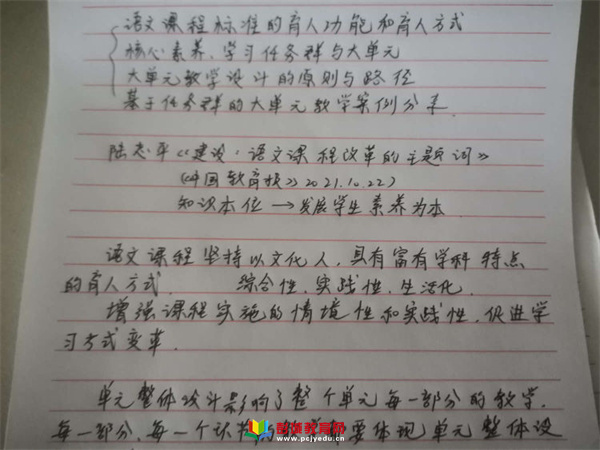 语文课程标准的育人功能和育人方式
核心素养、学习任务群与大单元
大单元教学设计的原则与路径
基于任务群的大单元教学案例分享
陆志平《建设:语文课程改革的主题词》
(《中国教育报》2021.10.22)
知识本位→发展学生素养为本
语文课程坚持以文化人,具有富有学科特点
的育人方式. 综合性、实践性、生活化.
增强课程实施的情境性和实践性,促进学
习方式变革.
单元整体设计影响了整个单元每一部分的教学.
每一部分、每一个 要体现单元整体设
教育网
www.pcjyedu.cn